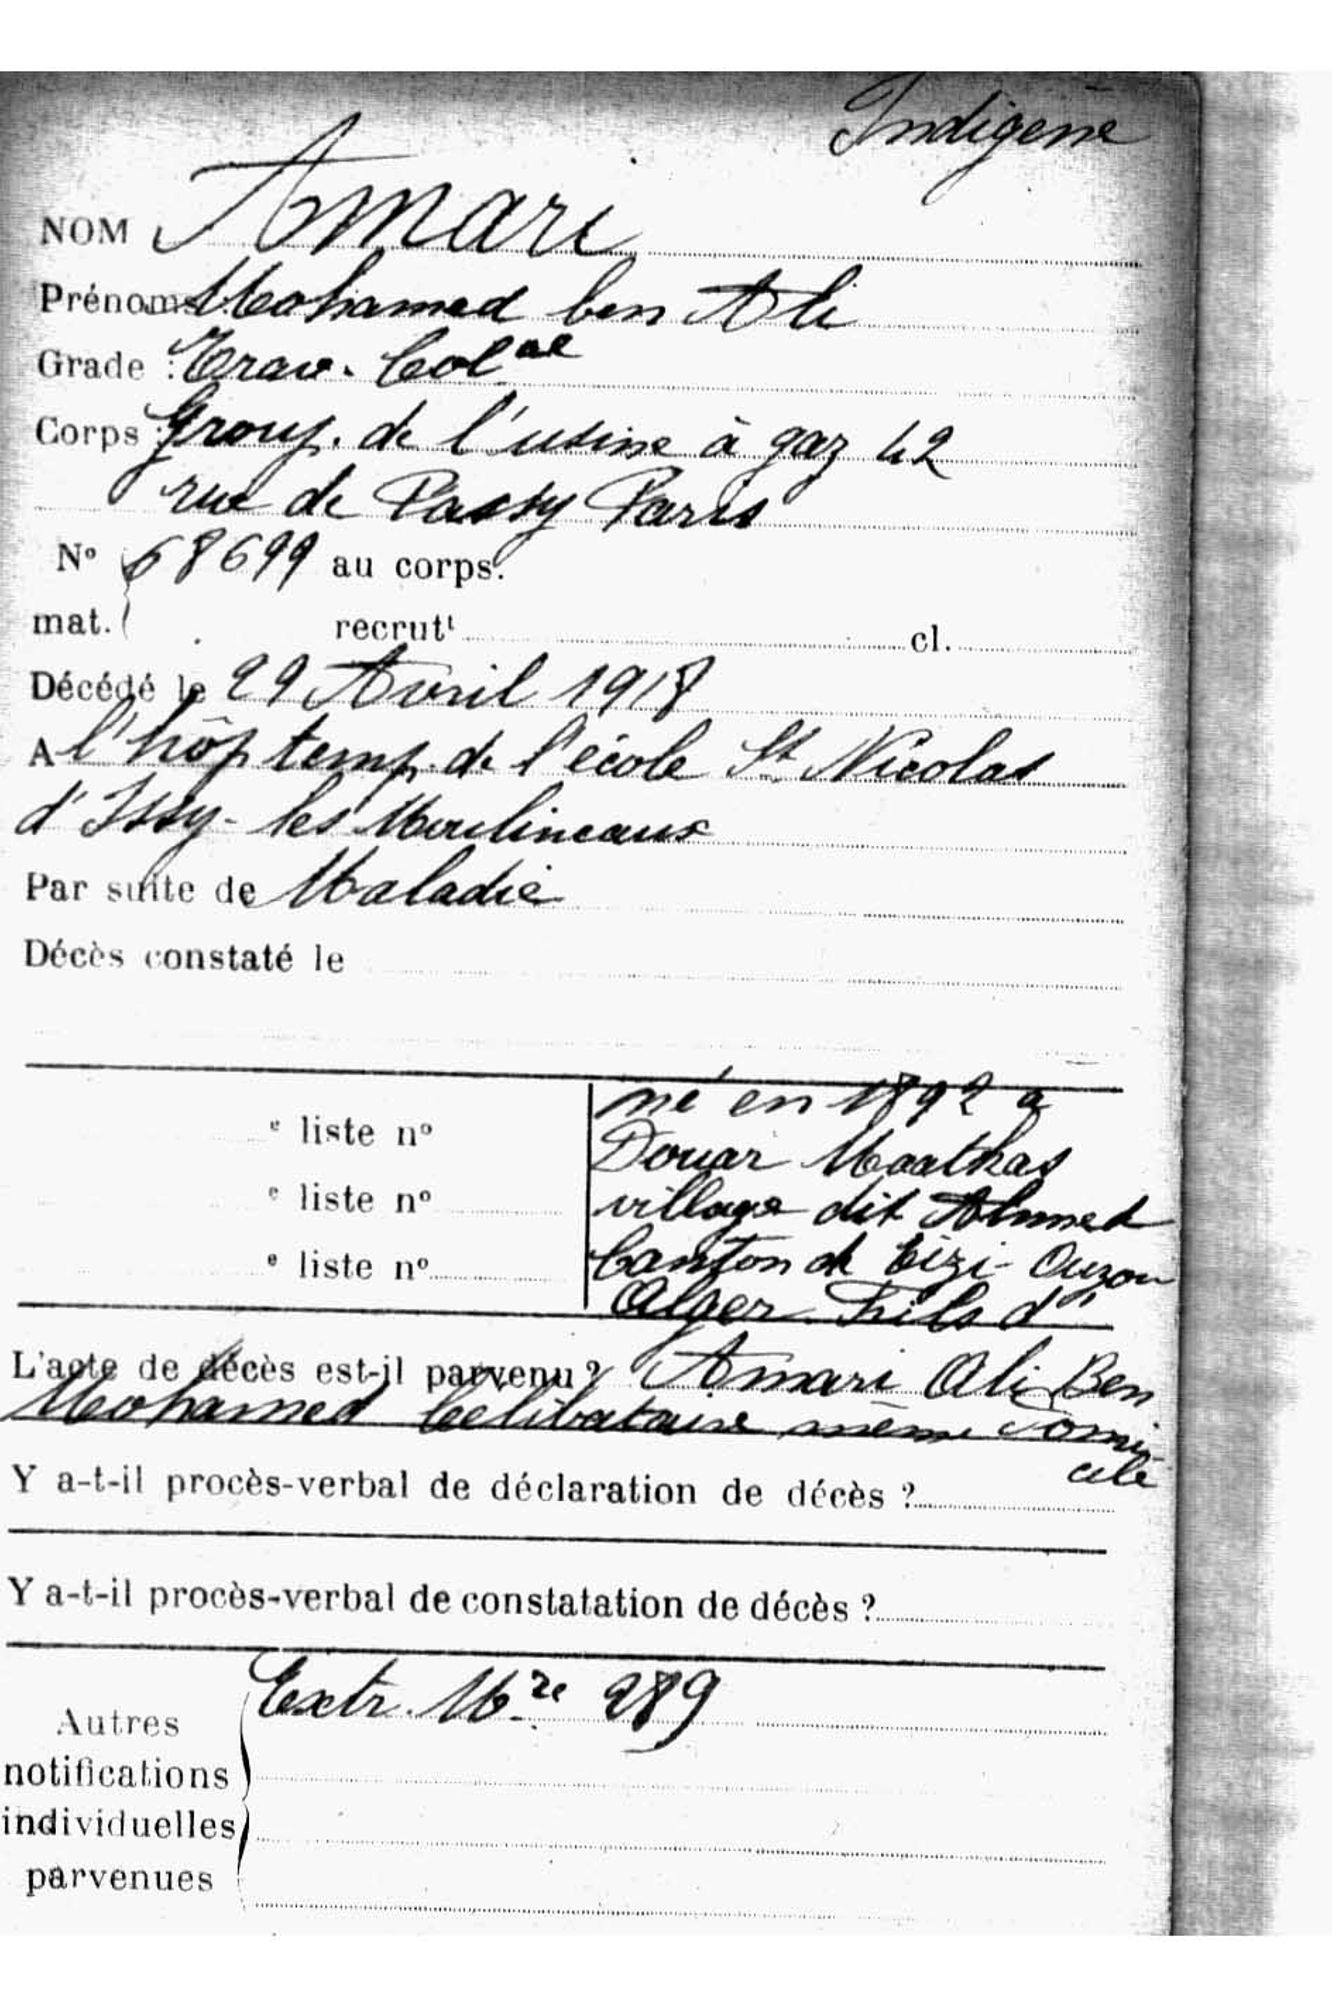 Indigène
NOM Amari
Prénoms Mohamed ben Ali
Grade : Trav. Col.al
Corps : Group. de l'usine à gaz 42
rue de Passy Paris
N° 68699 au corps.
mat. recrutt cl.
Décédé le 29 Avril 1918
A l'hôp temp. de l'école St Nicolas
d'Issy-les Moulineaux
Par suite de Maladie
Décès constaté le
né en 1892 a
e liste n°
Douar Maathas
e liste n°
village dit Ahmed
e liste n°
Canton de Tizi-Ouzou
Alger Fils d'
L'acte de décès est-il parvenu ? Amari Ali Ben
Mohamed Celibataire même Domi-
cile
Y a-t-il procès-verbal de déclaration de décès ?
Y a-t-il procès-verbal de constatation de décès ?
Extr. Mre 289
Autres
notifications
individuelles
parvenues